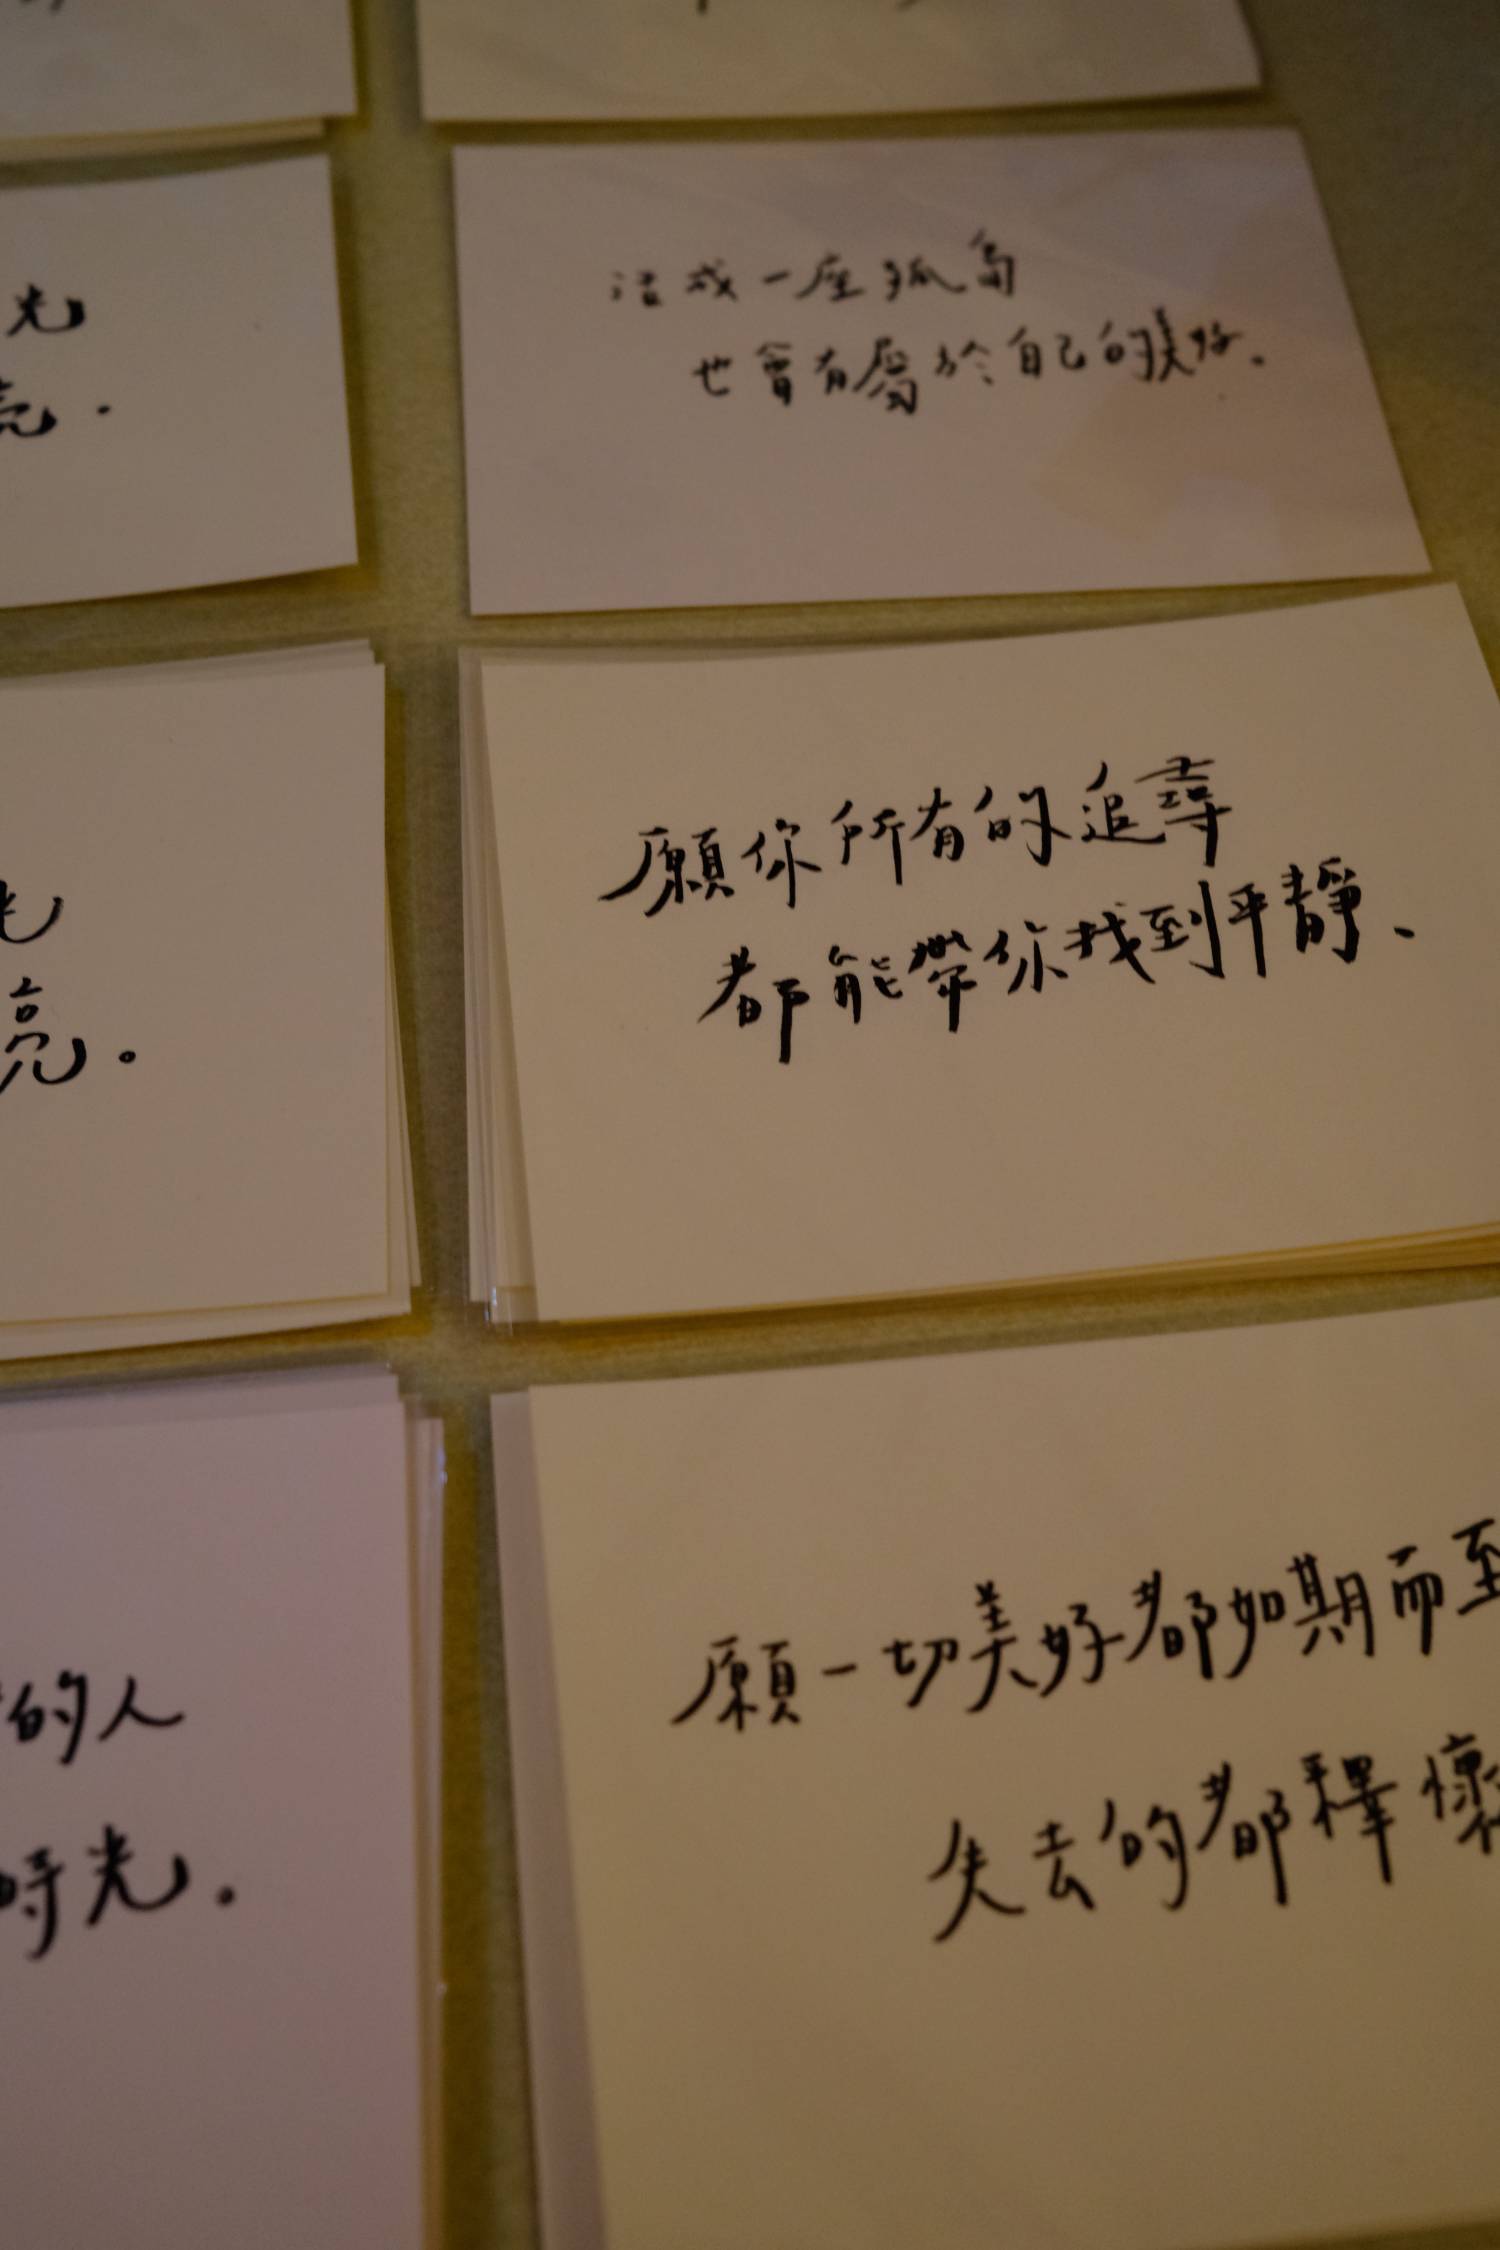 光
亮.
活成一座孤島
也會有屬於自己的美好、
光
亮。
願你所有的追尋
都能帶你找到平靜、
的人
時光。
願一切美好都如期而至
失去的都釋懷